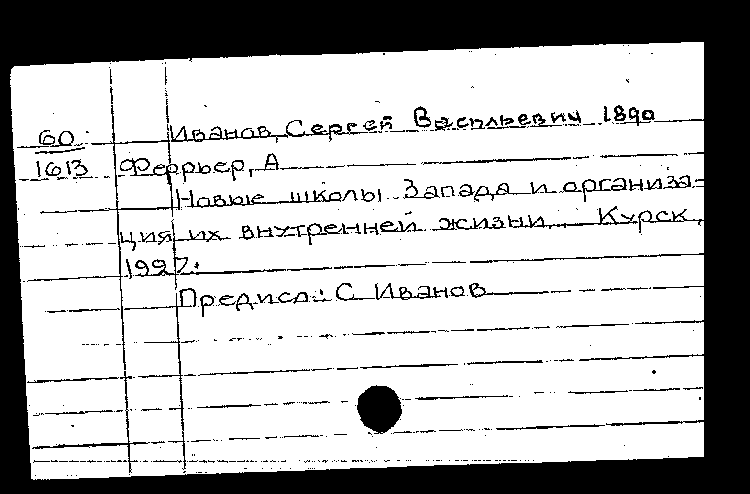 60 Иванов, Сергей Васильевич 1890
1613 Феррьер, А
Новые школы Запада и организа-
ция их внутренней жизни.. Курск,
1927.
Предисл.: С. Иванов